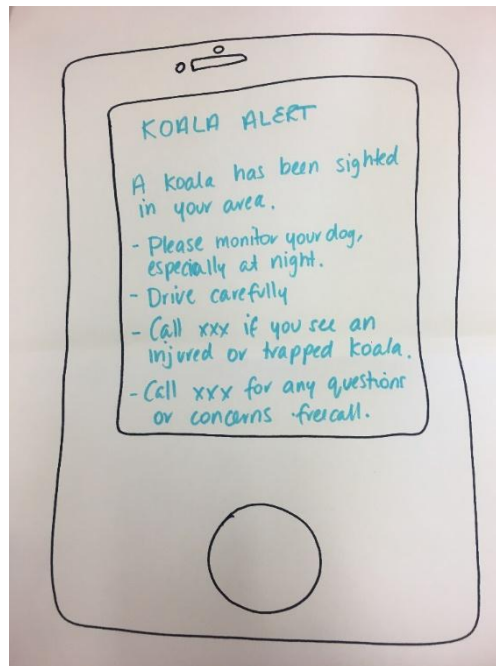 KOALA ALERT
A Koala has been sighted
in your area.
- Please monitor your dog,
especially at night.
- Drive carefully
- Call xxx if you see an
injured or trapped koala.
- Call xxx for any questions
or concerns freecall.